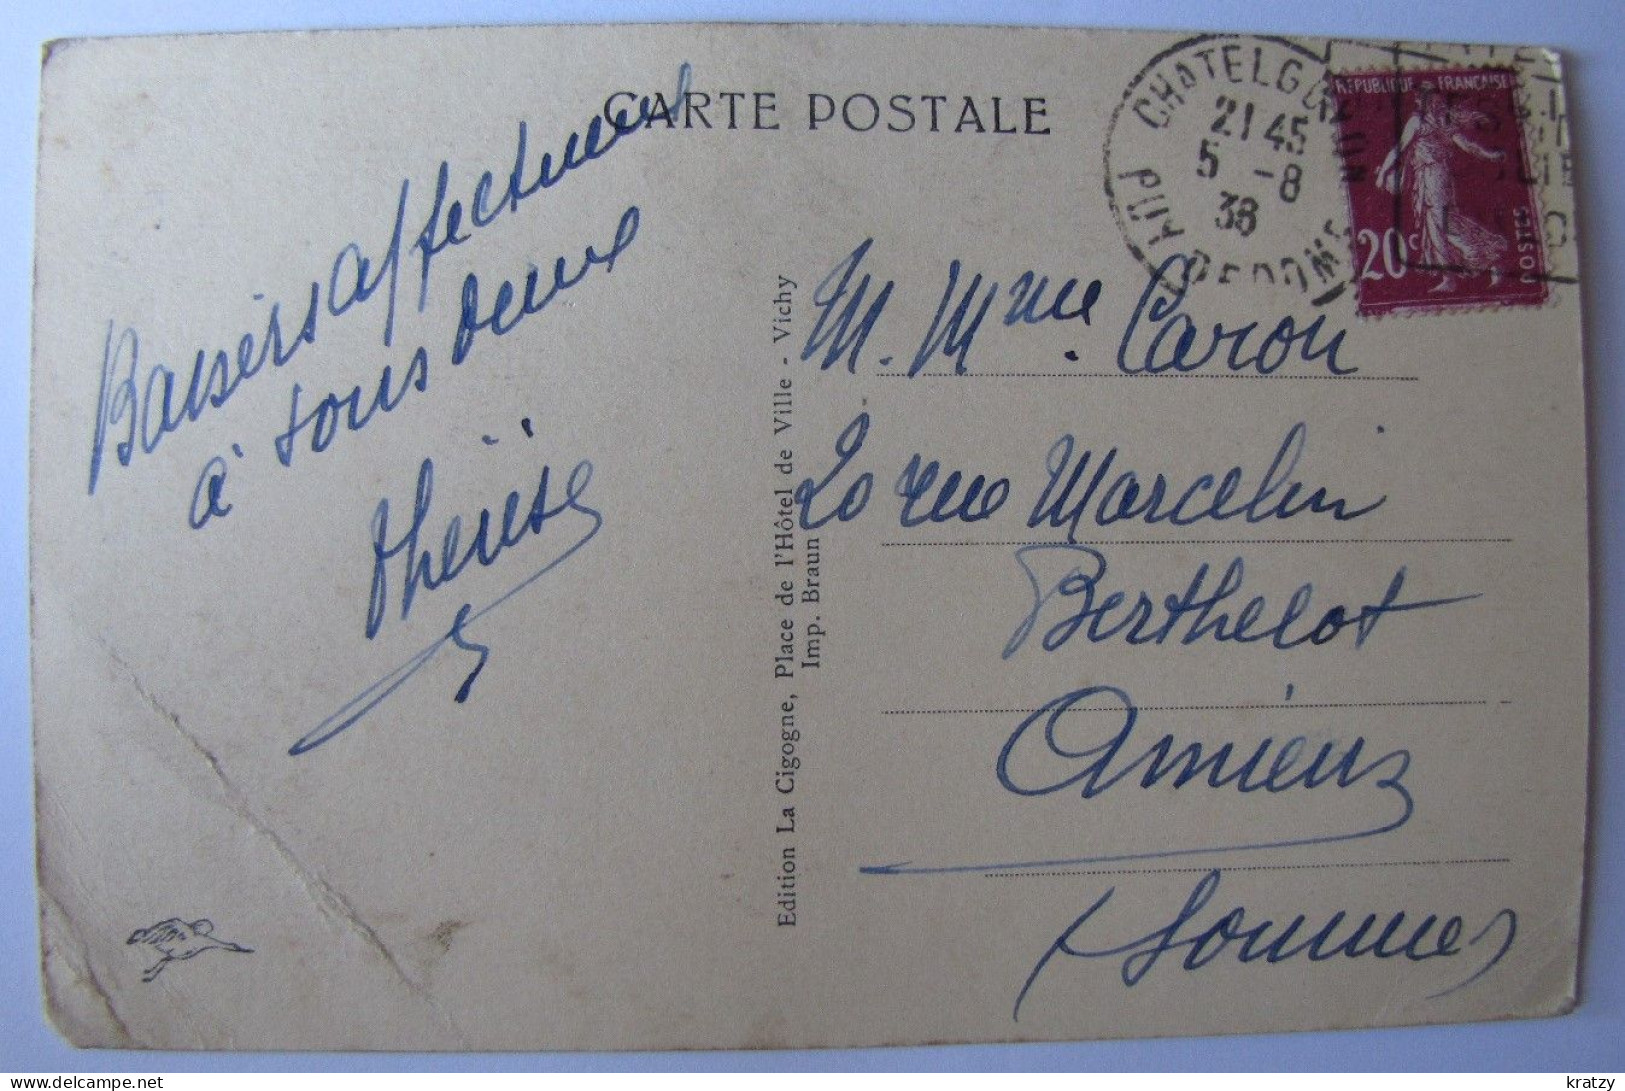 CARTE POSTALE
Baisers affectueux
à tous deux
Thérèse
Edition La Cigogne, Place de l'Hôtel de Ville - Vichy
Imp. Braun
CHATELGUYON
21 45
5 - 8
38
PUY DE DOME
REPUBLIQUE FRANÇAISE
20c
POSTES
M. Mme Caron
20 rue Marcelin
Berthelot
Amiens
(Somme)
kratzy